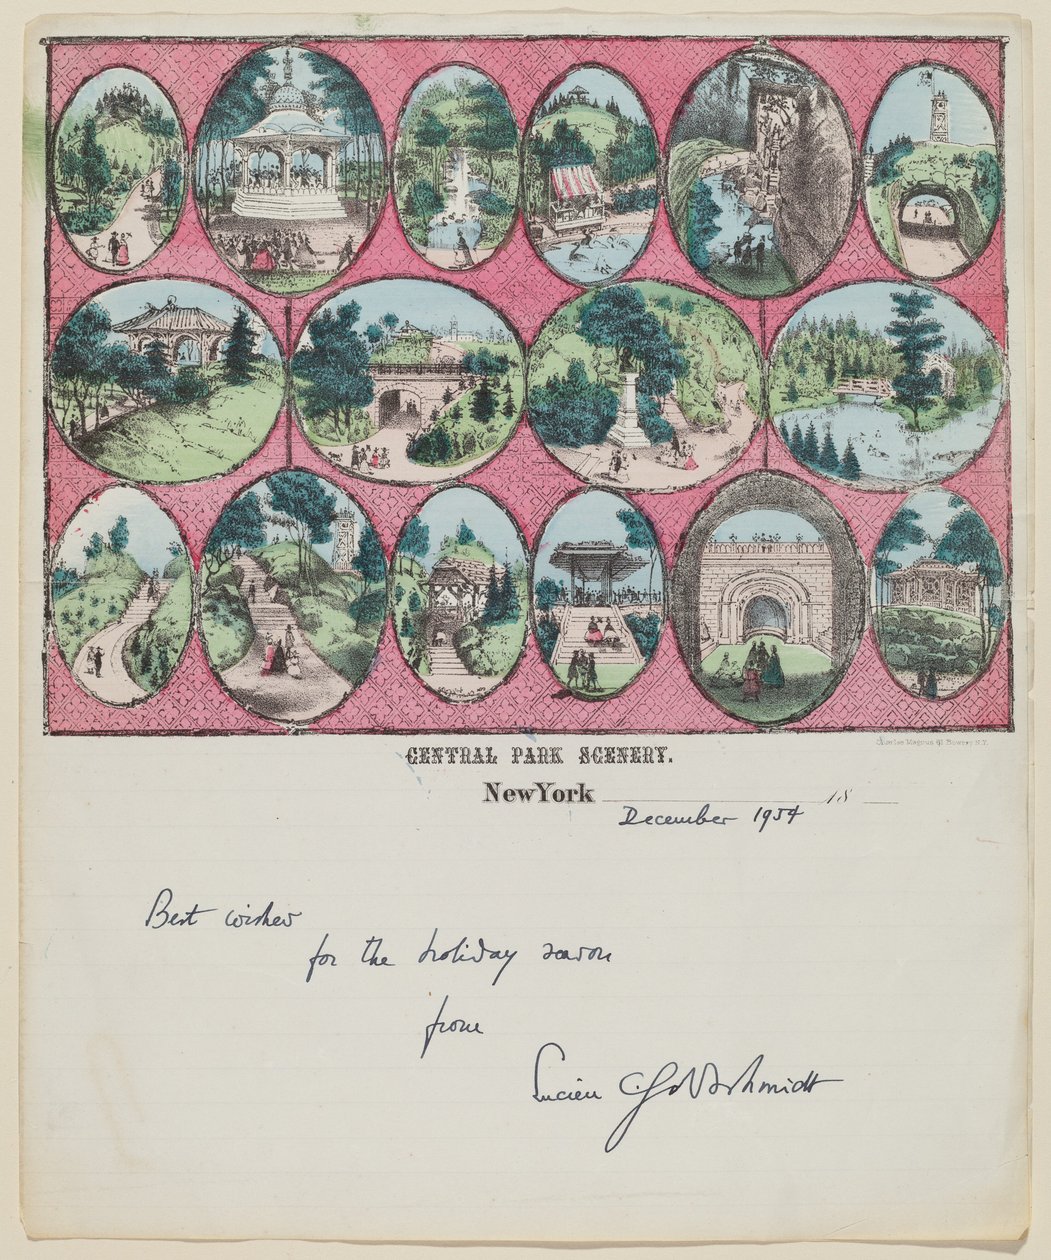 Charles Magnus 12 Bowery N.Y.
CENTRAL PARK SCENERY.
New York 18
December 1954
Best wishes
for the holiday season
from
Lucien Goldschmidt